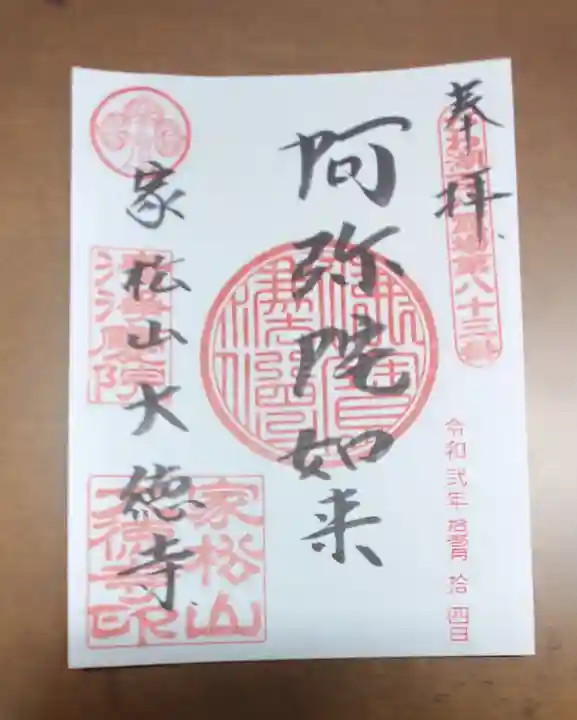 奉拝
第八十三番
令和弐年 拾壱月 拾四日
阿弥陀如来
家松山大徳寺
家松山
大徳寺印